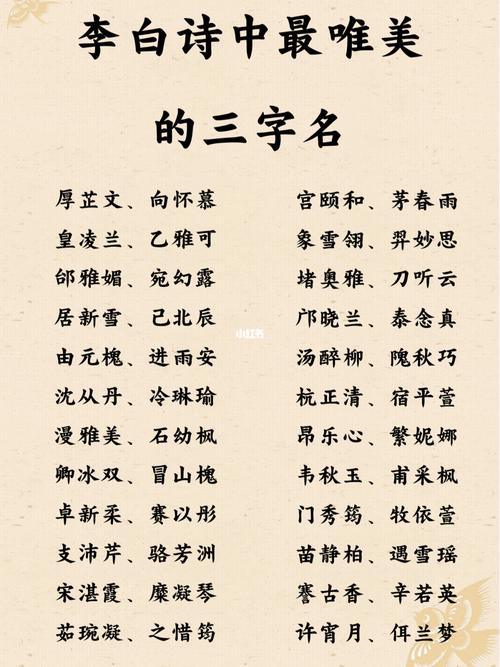 李白诗中最唯美
的三字名
厚芷文、向怀慕
宫颐和、茅春雨
皇凌兰、乙雅可
象雪翎、羿妙思
邰雅媚、宛幻露
堵奥雅、刀听云
居新雪、己北辰
邝晓兰、泰念真
由元槐、进雨安
汤醉柳、隗秋巧
沈从丹、冷琳瑜
杭正清、宿平萱
漫雅美、石幼枫
昂乐心、繁妮娜
卿冰双、冒山槐
韦秋玉、甫采枫
卓新柔、赛以彤
门秀筠、牧依萱
支沛芹、骆芳洲
苗静柏、遇雪瑶
宋湛霞、糜凝琴
謇古香、辛若英
茹琬凝、之惜筠
许宵月、佴兰梦
小红书